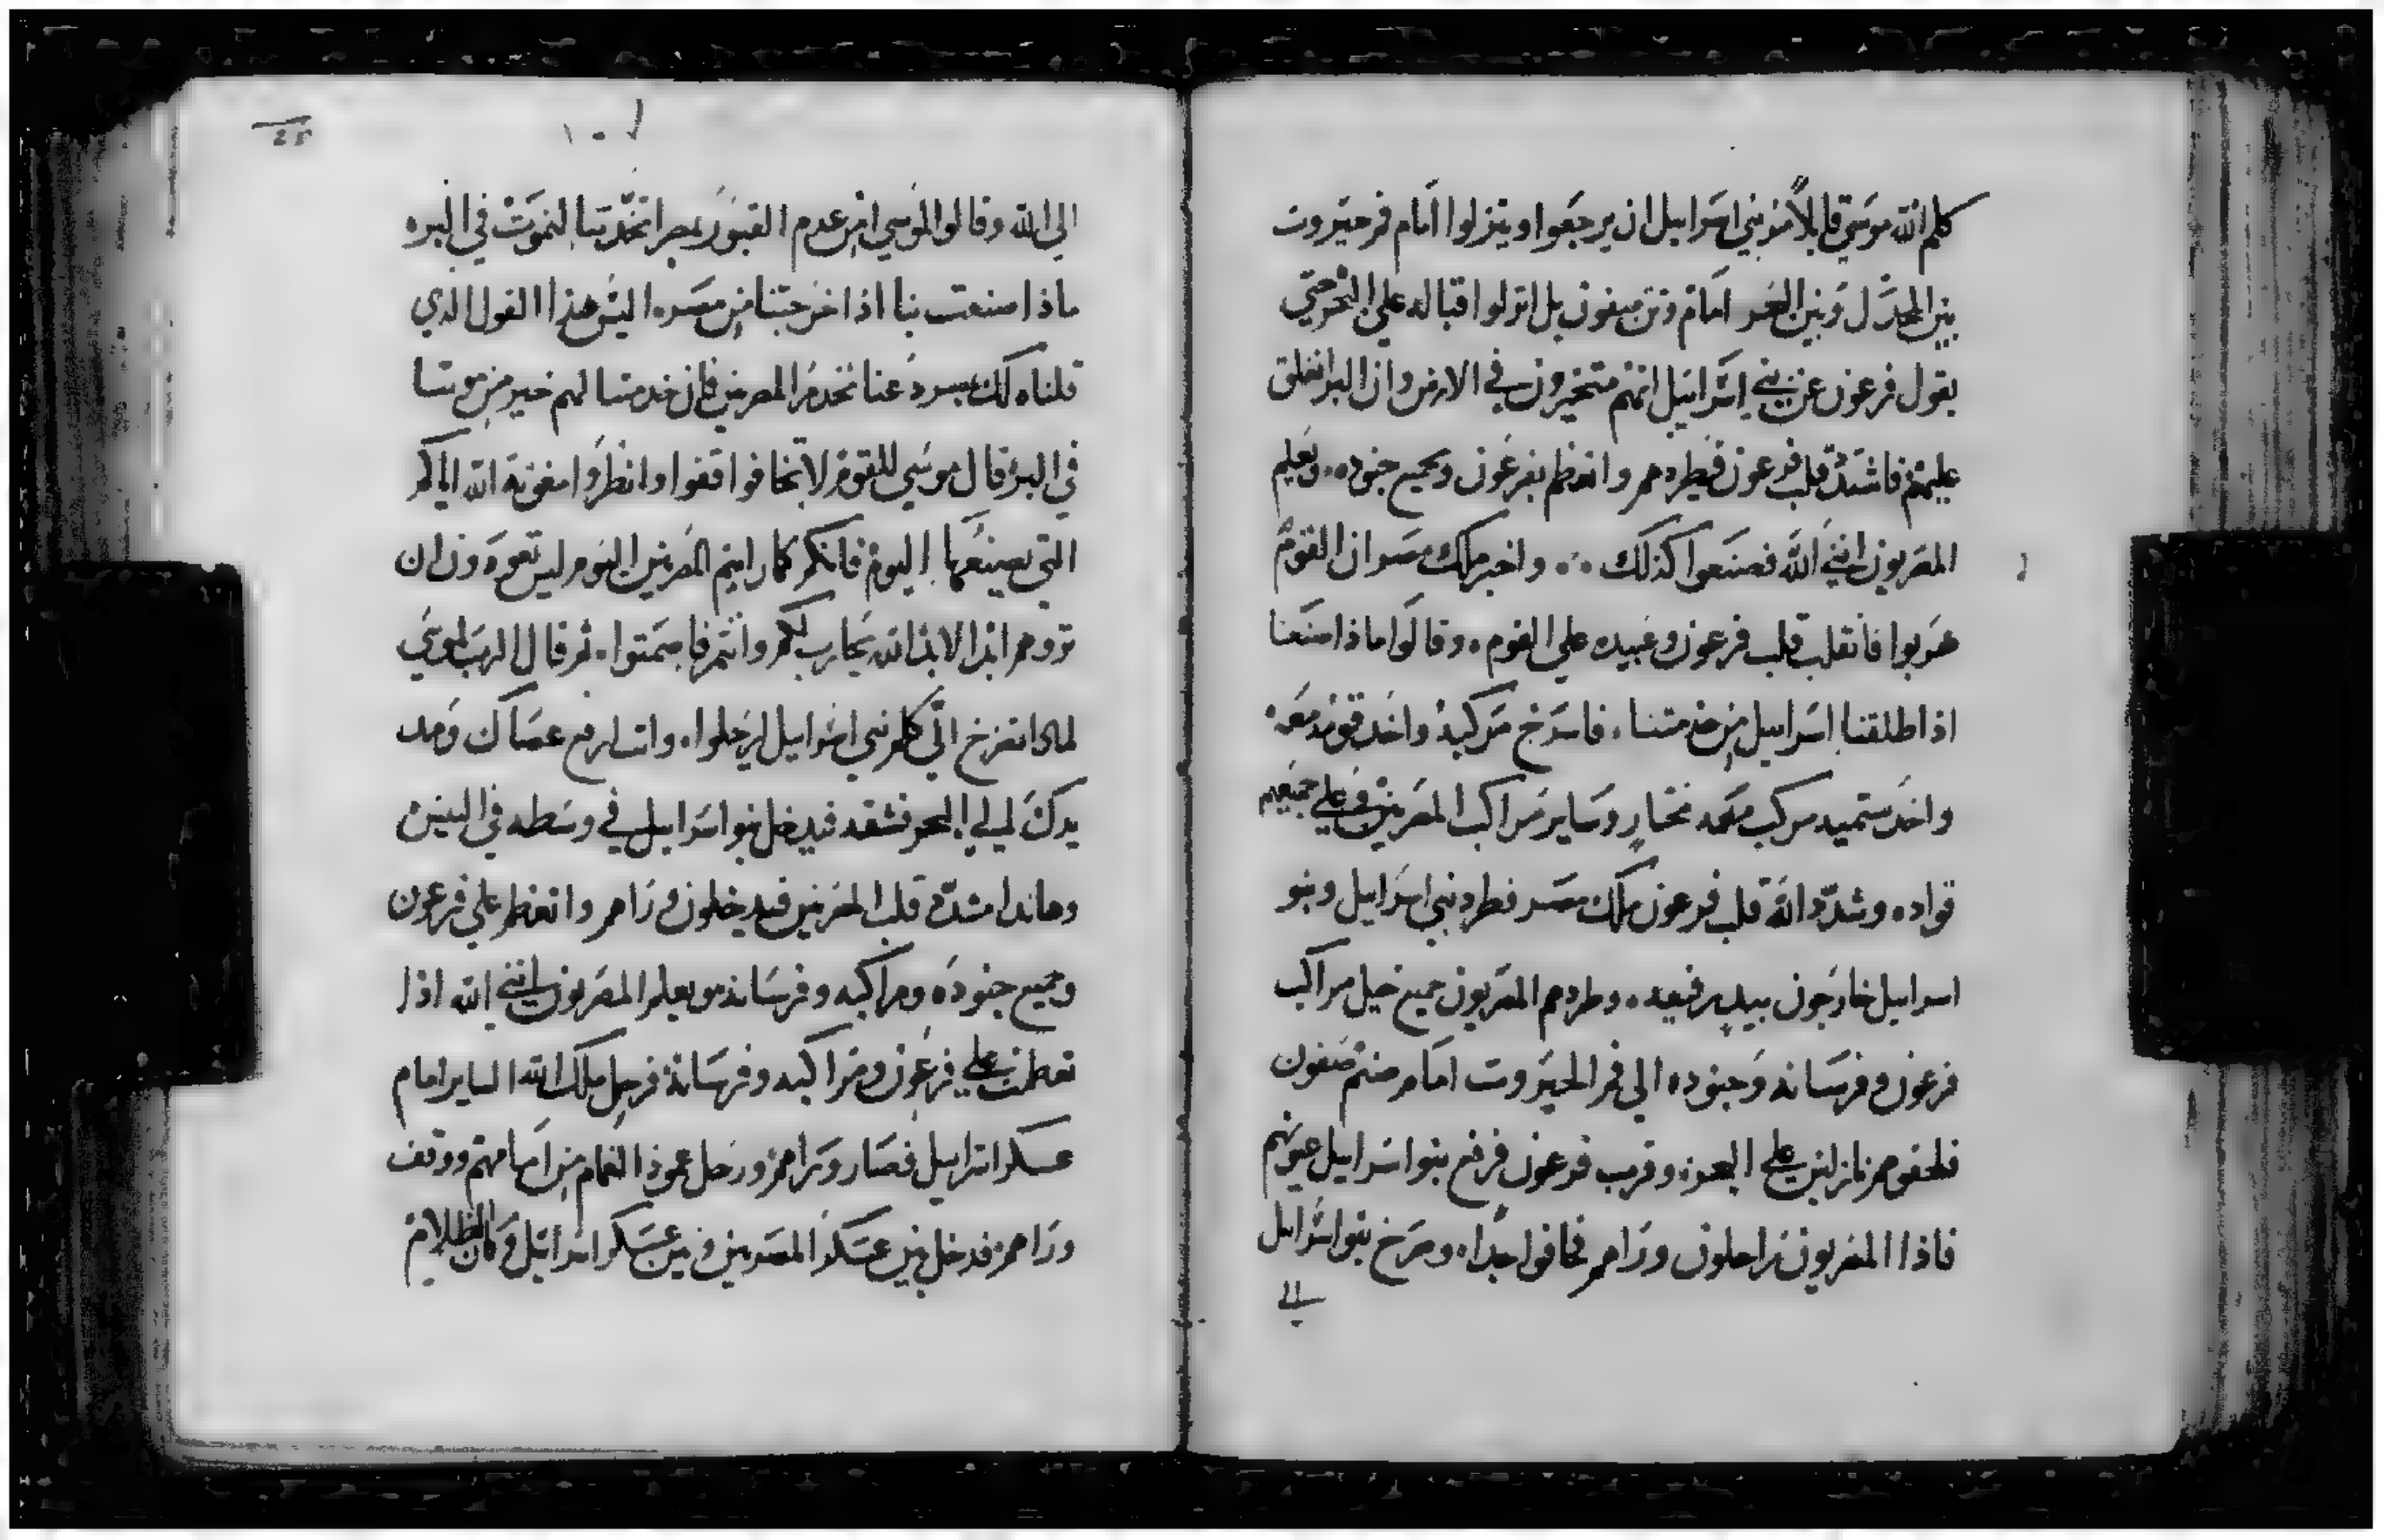 كلم الله موسي قايلاً مر بني اسراييل ان يرجعوا وينزلوا امام فم حيروت
بين المجدل وبين البحر امام وثن صفون بل انزلوا قباله علي البحر حتي
يقول فرعون عن بني اسراييل انهم متحيرون في الارض وان البر انغلق
عليهم فاشتد قلب فرعون فيطردهم واتعظم بفرعون وبجميع جنوده ويعلم
المصريون انني الله فصنعوا كذلك واخبر ملك مصر ان القوم
هربوا فانقلب قلب فرعون وعبيده علي القوم وقالوا ماذا صنعنا
اذ اطلقنا اسراييل من خدمتنا فاسرج مركبه واخد قومه معه
واخد ستميه مركب معه مختار وساير مراكب المصريين وعلي جميعهم
قواده وشدد الله قلب فرعون ملك مصر فطرد بني اسراييل وبنو
اسراييل خارجون بيد رفيعه وطردهم المصريون جميع خيل مراكب
فرعون وفرسانه وجنوده الي فم الحيروت امام صنم صفون
فلحقوهم نازلين علي البحر وقرب فرعون فرفع بنوا اسراييل عيونهم
فاذا المصريون راحلون وراهم فخافوا جداً وصرخ بنوا اسراييل
الي
الي الله وقالوا لموسي امن عدم القبور بمصر اتخدتنا لنموت في البره
ماذا صنعت بنا اذ اخرجتنا من مصر اليس هذا القول الدي
قلناه لك بمصر دعنا نخدم المصريين فان خدمتنا لهم خير من موتنا
في البر فقال موسي للقوم لا تخافوا قفوا وانظروا معونة الله اياكم
التي يصنعها اليوم فانكم كما رايتم المصريين اليوم ليس تعودون ان
تروهم ابد الابد الله يحارب لكم وانتم فاصمتوا ثم قال الرب لموسي
لماذا تصرخ الي كلم بني اسراييل ليرحلوا وانت ارفع عصاك ومد
يدك لي الي البحر فشقه فيدخل بنوا اسراييل في وسطه في اليبس
وهاندا مشدد قلب المصريين فيدخلون وراهم واتعظم علي فرعون
وجميع جنوده ومراكبه وفرسانه ويعلم المصريون انني الله اذا
تعظمت علي فرعون ومراكبه وفرسانه فرحل ملك الله الساير امام
عسكر اسراييل فصار وراهم ورحل عمود الغمام من امامهم ووقف
وراهم فدخل بين عسكر المصريين وبين عسكر اسراييل وكان الظلام